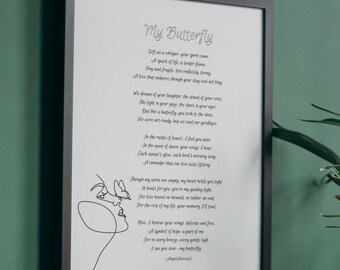 My Butterfly
Soft as a whisper your spirit came,
A spark of life, a tender flame.
Tiny and fragile, love endlessly strong,
A love that endures, though your stay was not long.
We dream of your laughter, the sound of your cries,
The light in your gaze, the stars in your eyes.
But like a butterfly, you took to the skies,
We were not ready, but we said our goodbyes.
In the rustle of leaves, I feel you near,
In the quiet of dawn, your wings I hear.
Each sunset's glow, each bird's morning song,
A reminder that our love lasts lifelong.
Though my arms are empty, my heart holds you tight,
It beats for you, you're my guiding light.
For love knows no bounds, no either, no end,
For the rest of my life, your memory, I'll tend.
Now, I honour your wings, delicate and free,
A symbol of hope, a part of me.
For in every breeze, every gentle sigh,
I see you dear - my butterfly.